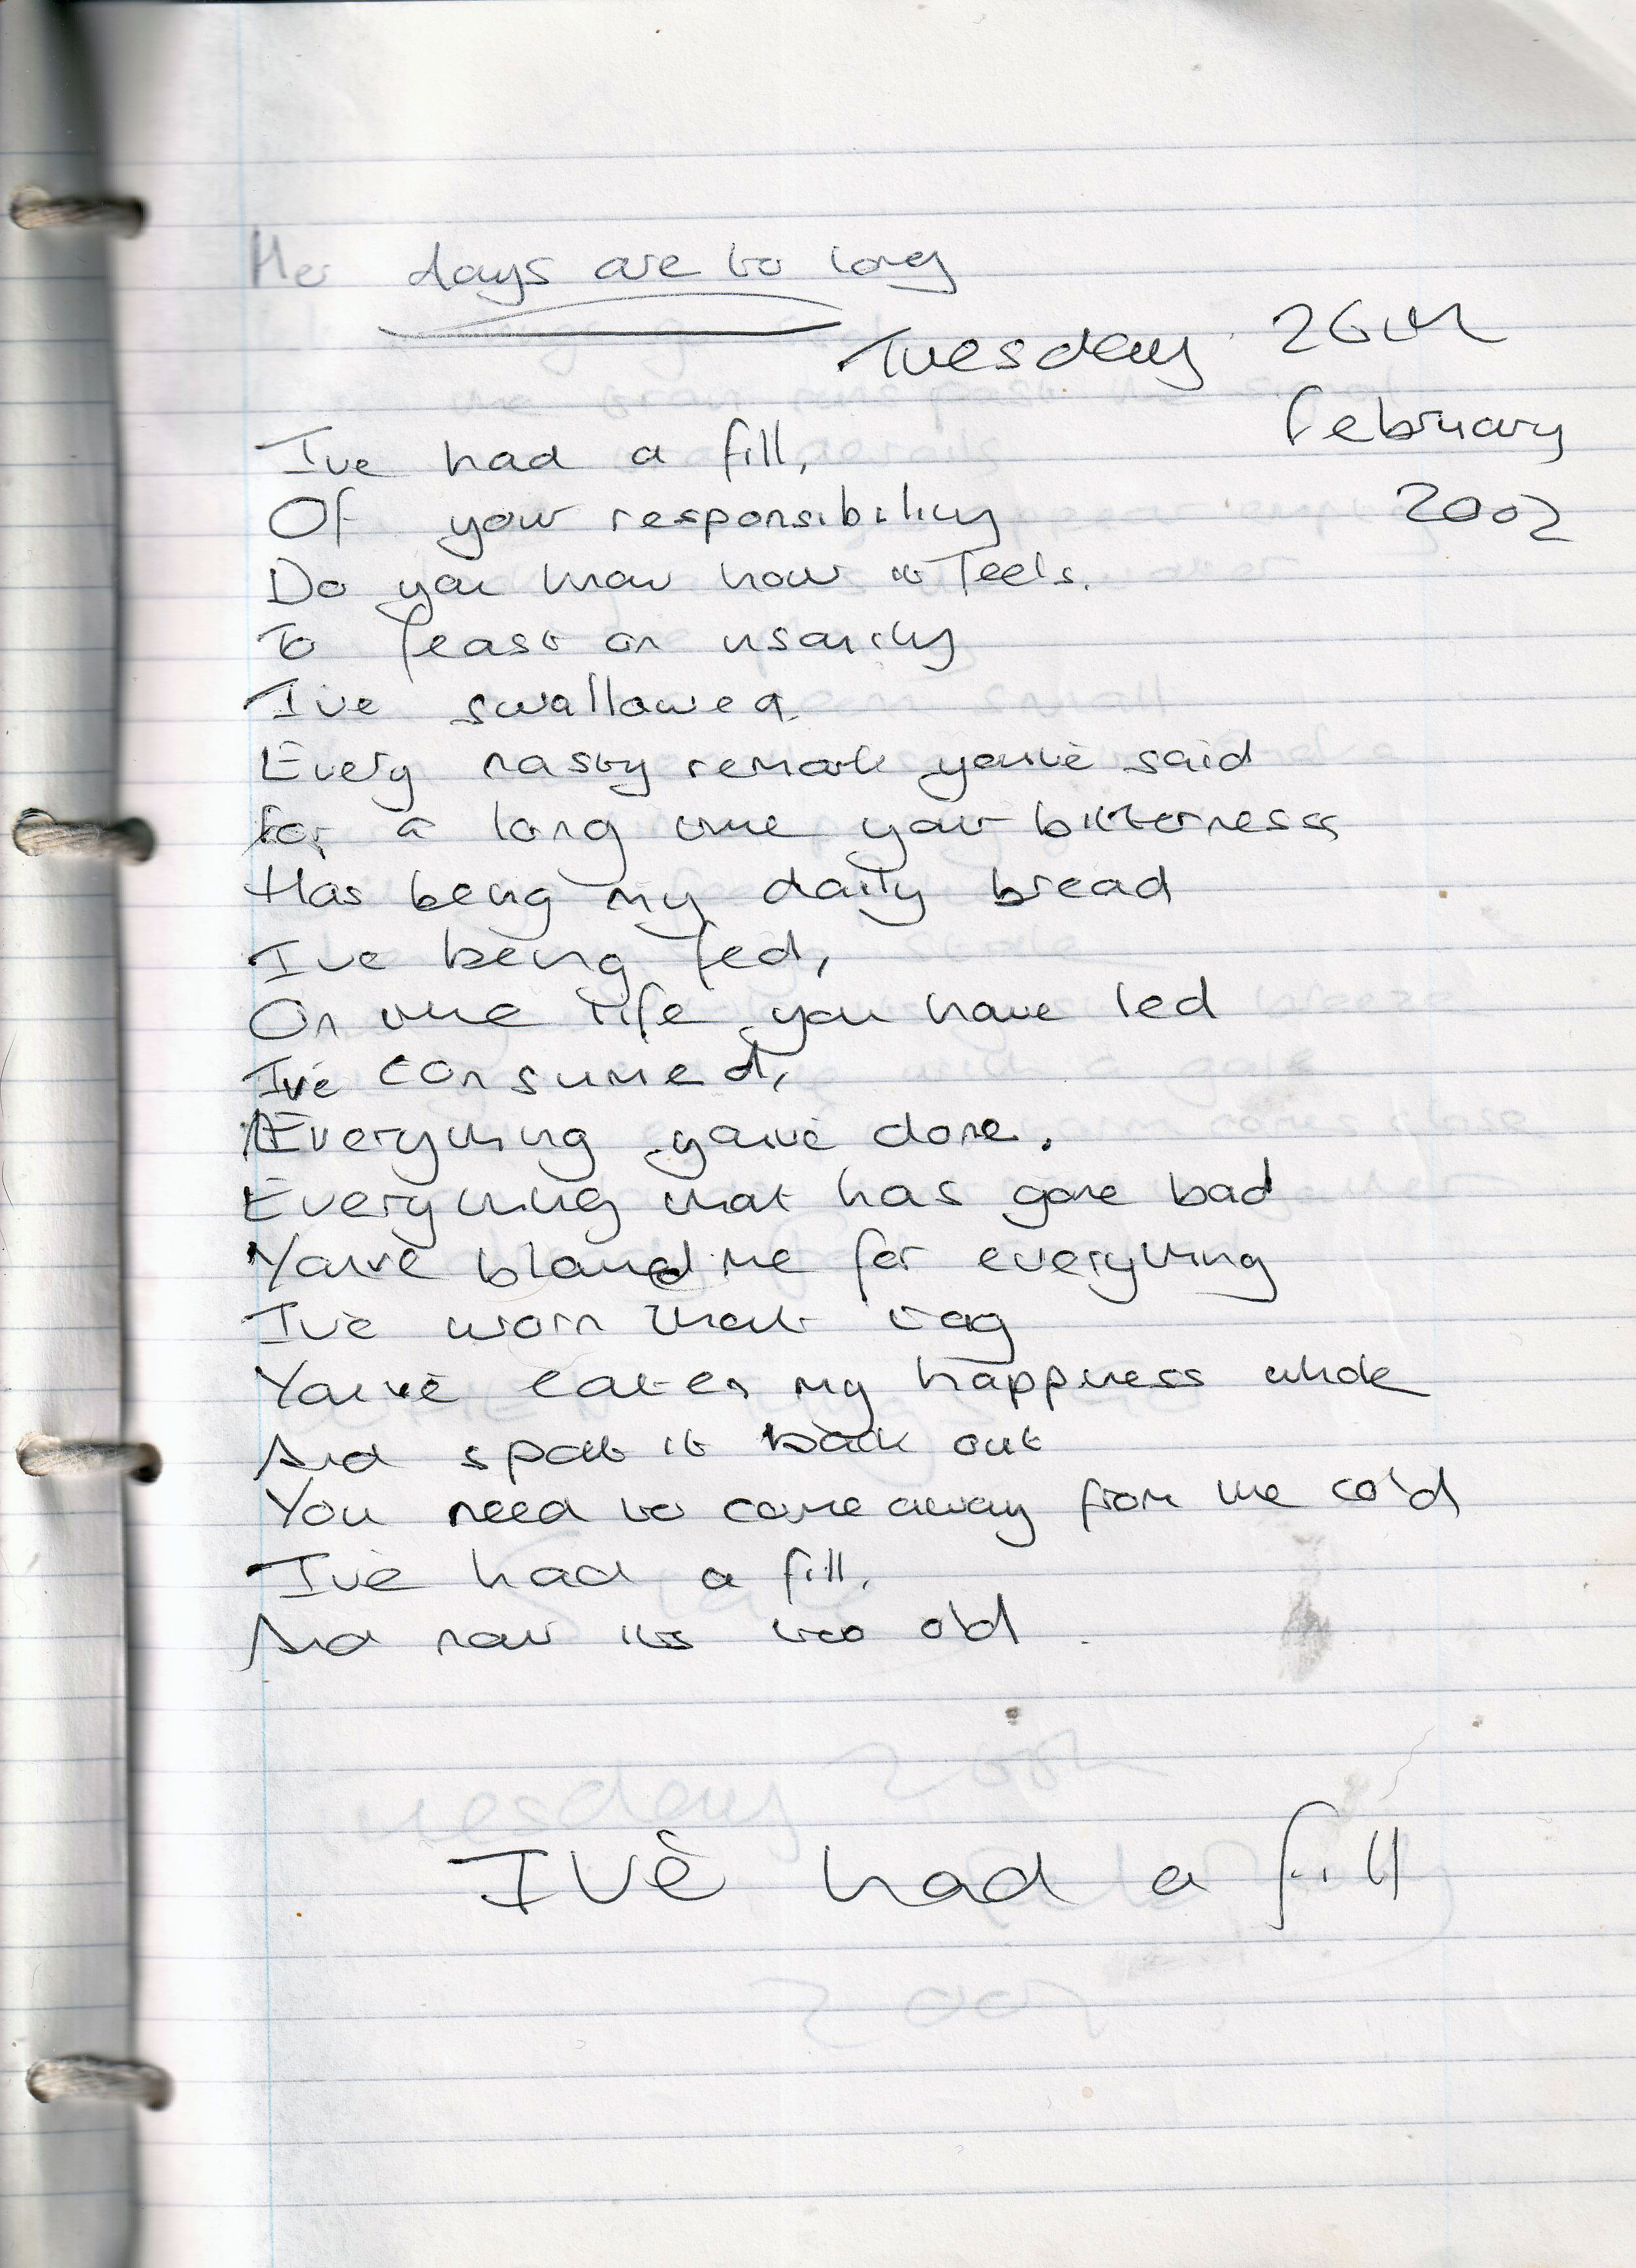 Her days are to long
Tuesday 26th
February
2002
I've had a fill,
Of your responsibility
Do you know how it feels.
To feast on
I've swallowed
Every nasty remark you've said
for a long time your bitterness
Has being my daily bread
I've being fed,
On the life you have led
I've consumed,
Everything you've done.
Everything that has gone bad
You've blamed me for everything
I've worn that tag
You've eaten my happiness whole
And spat it back out
You need to come away from the cold
I've had a fill,
And now its too old.
I've had a fill